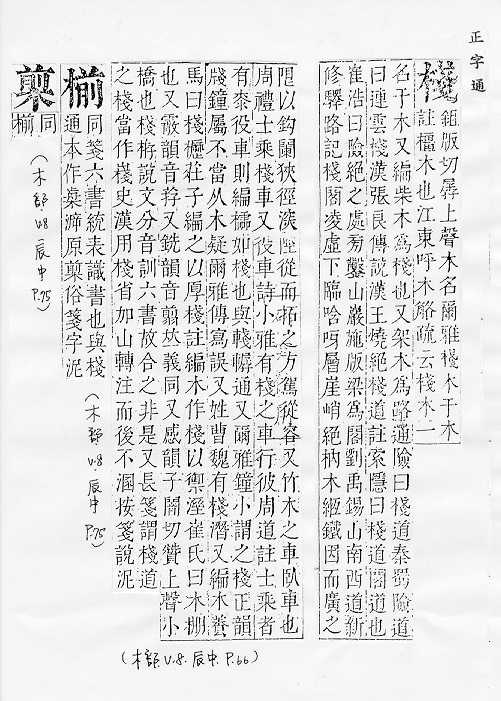 正字通
棧
鉏版切孱上聲木名爾雅棧木干木
註橿木也江東呼木觡疏云棧木一
名于木又編柴木為棧也又架木為路通險曰棧道秦蜀險道
曰連雲棧漢張良傳說漢王燒絕棧道註索隱曰棧道閣道也
崔浩曰險絕之處旁鑿山巖施版梁為閣劉禹錫山南西道新
修驛路記棧閣凌虛下臨谽呀層崖峭絕枘木緪鐵因而廣之
限以鉤闌狹徑淡陘從而拓之方駕從容又竹木之車臥車也
周禮士乘棧車又役車詩小雅有棧之車行彼周道註士乘者
有桼役車則編櫺如棧也與轏轏通又爾雅鐘小謂之棧正韻
牋鐘屬不當从木疑爾雅傳寫誤又姓曹魏有棧潛又編木養
馬曰棧櫪莊子編之以厚棧註編木作棧以禦溼崔氏曰木棚
也又霰韻音荐又銑韻音翦𠀤義同又感韻子閞切贊上聲小
橋也棧栫說文分音訓六書故合之非是又長箋謂棧道
之棧當作嶘史漢用棧省加山轉注而後不溷按箋說泥
(木部.V.8.辰中.P.66)
椾
同箋六書統表識書也與棧
通本作
原
俗箋字泥
(木部 V.8 辰中 P.75)
同
椾
(木部 V.8 辰中 P.75)